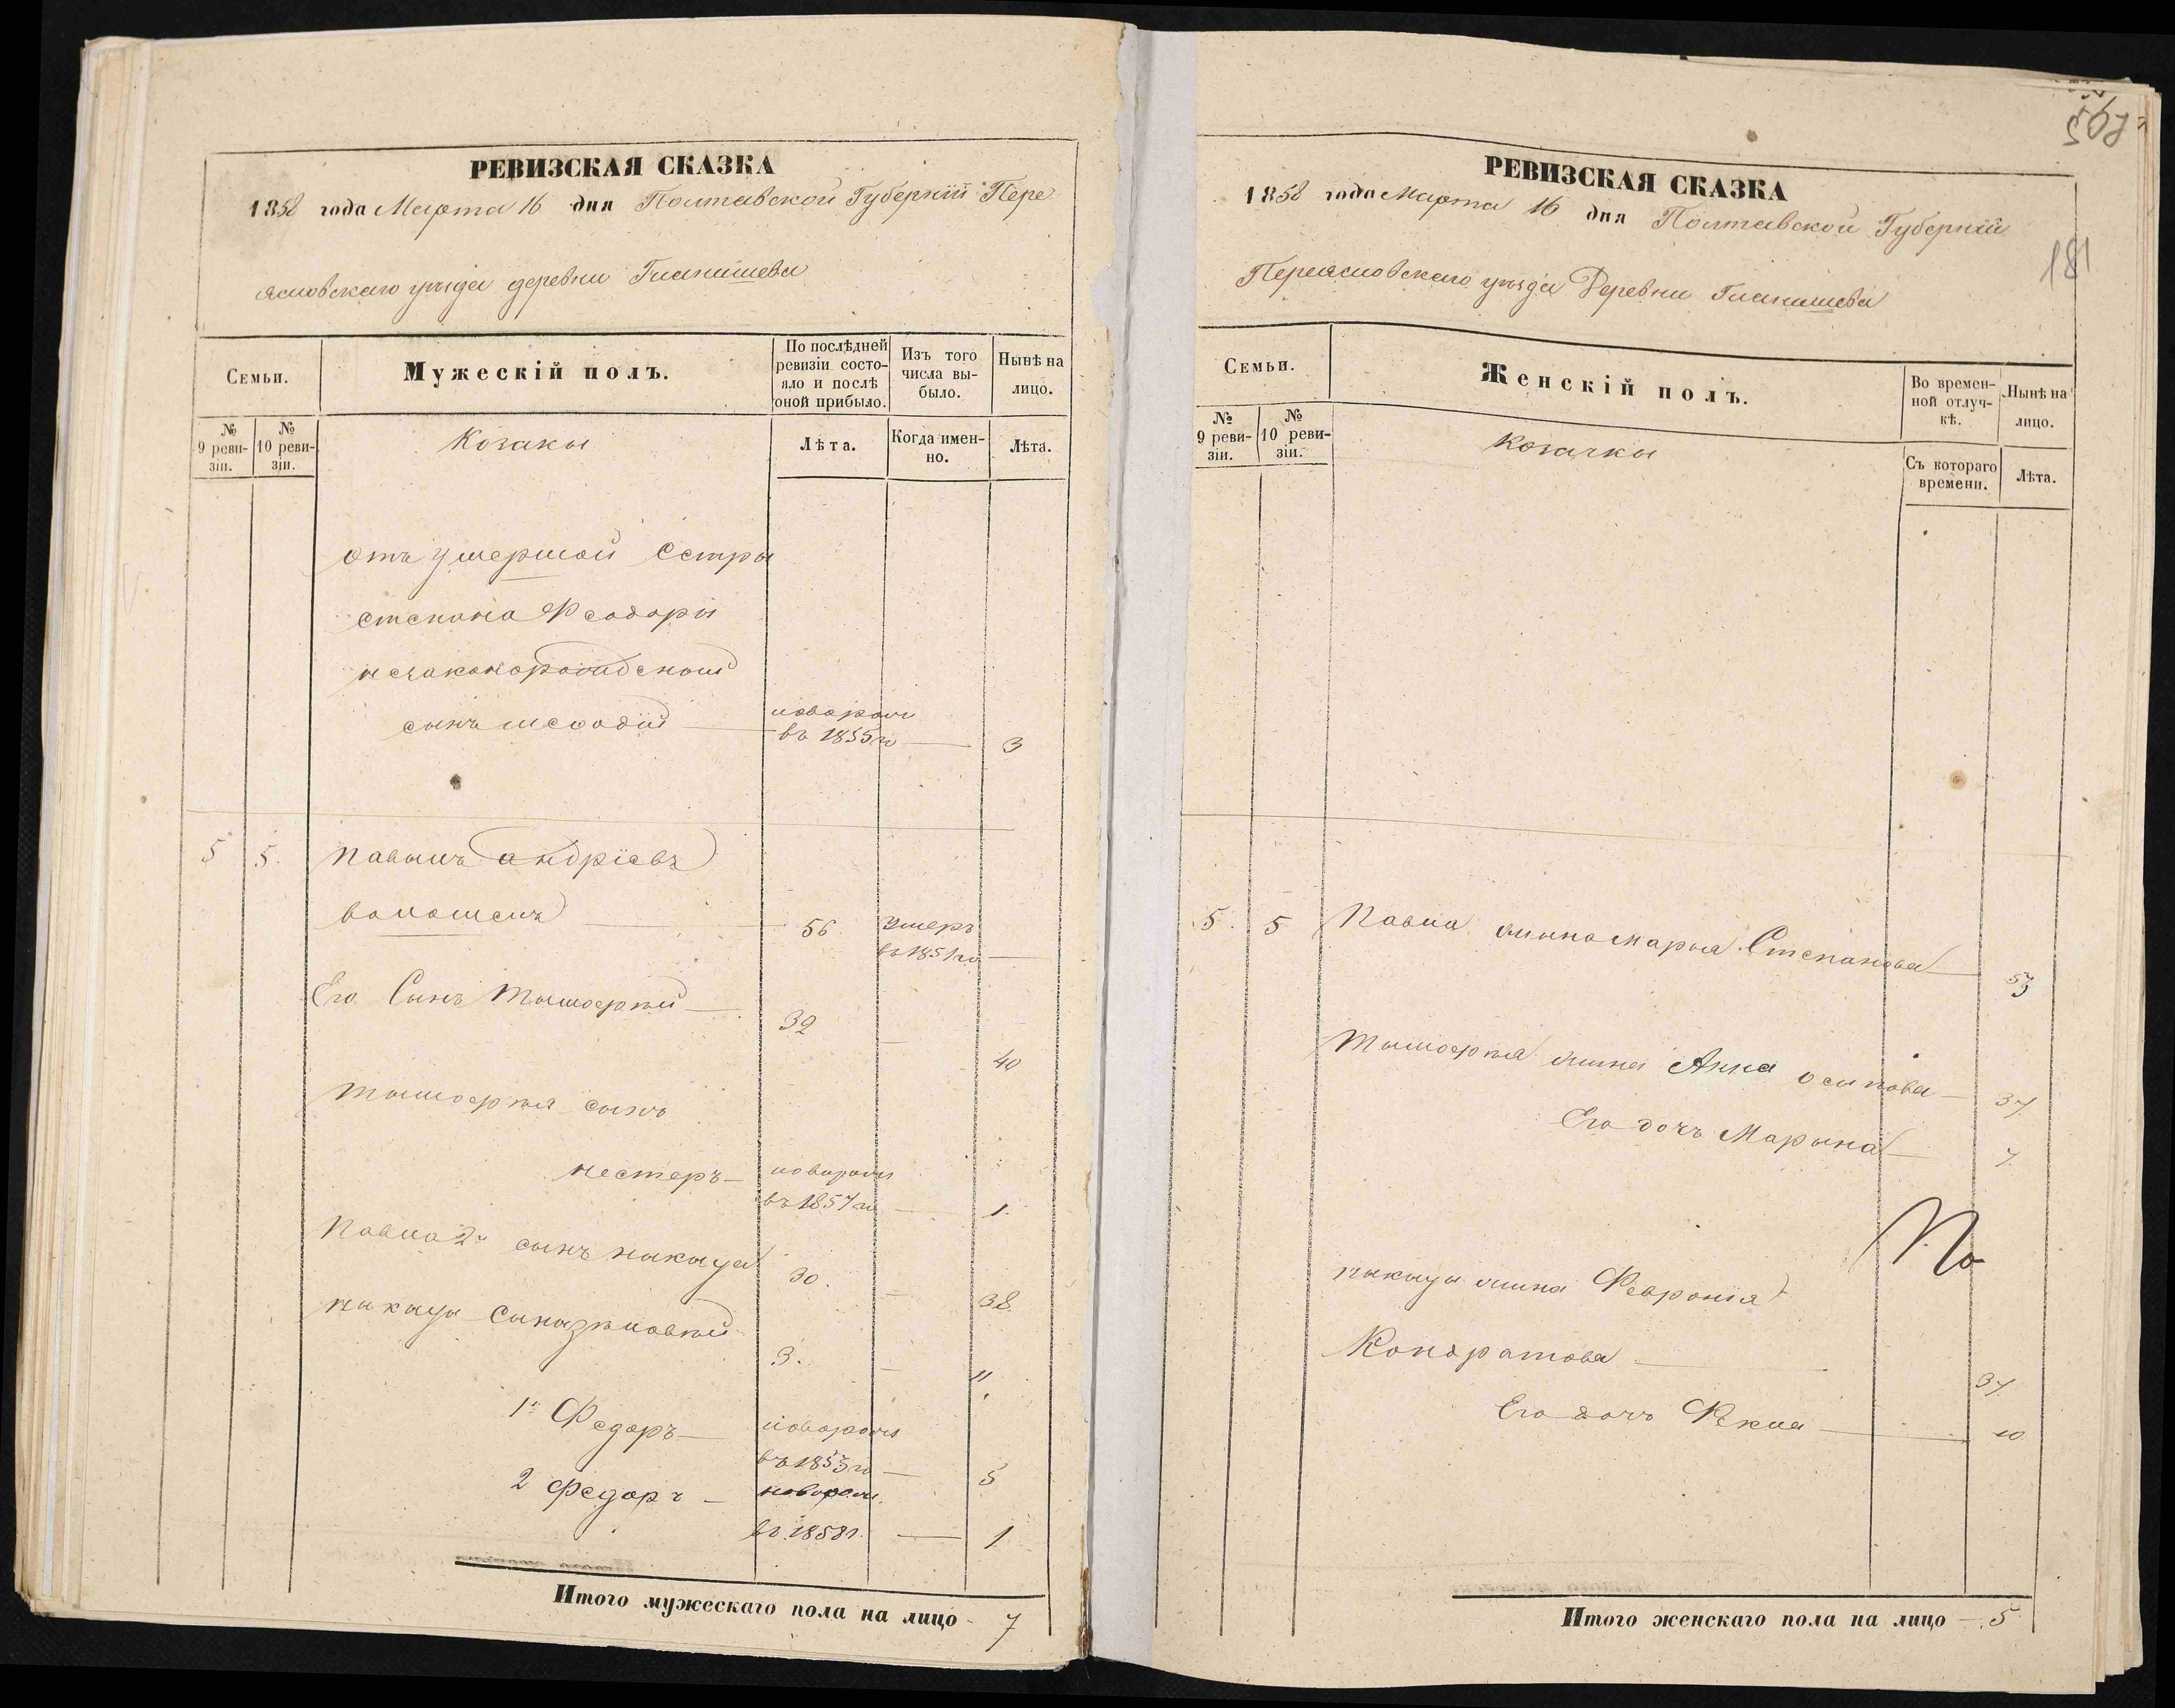 РЕВИЗСКАЯ СКАЗКА
1858 года Марта 16 дня Полтавской Губернiи Пере
ясловскаго уѣзда деревни Гланишева
Семьи.
Мужескiй полъ.
По послѣдней ревизiи состояло и послѣ оной прибыло.
Изъ того числа выбыло.
Нынѣ на лицо.
№ 9 ревизiи.
№ 10 ревизiи.
Козаки
Лѣта.
Когда именно.
Лѣта.
отъ умершой Сестры
степана Феодоры
незаконорожденой
сынъ
новорож
въ 1855 го — 3
5 5. Павылъ андрiевъ
волошенъ — 56 умеръ
въ 1851 го —
Его Сынъ Тымофѣй — 32 — 40
Тымофѣя сынъ
нестеръ — новорож
въ 1857 го — 1.
Павла 2й сынъ никыта 30. — 38
никыты Сыны зѣновѣй 3. — 11
1й Федоръ — новорож
въ 1853 го — 5
2 Федоръ — новорож.
въ 1858 г. — 1
Итого мужескаго пола на лицо - 7
181
РЕВИЗСКАЯ СКАЗКА
1858 года Марта 16 дня Полтавской Губернiи
Переясловскаго уѣзда Деревни Гланишева
Семьи.
Женскiй полъ.
Во временной отлучкѣ.
Нынѣ на лицо.
№ 9 ревизiи.
№ 10 ревизiи.
Козачки
Съ котораго времени.
Лѣта.
5. 5 Павла жына марья Степанова — 53
Тымофѣя жина Анна осипова — 37
Его дочъ Марына — 7.
никыты жина Февронiя
Кондратова — 37.
Его дочъ Фекла — 10
По
Итого женскаго пола на лицо — 5